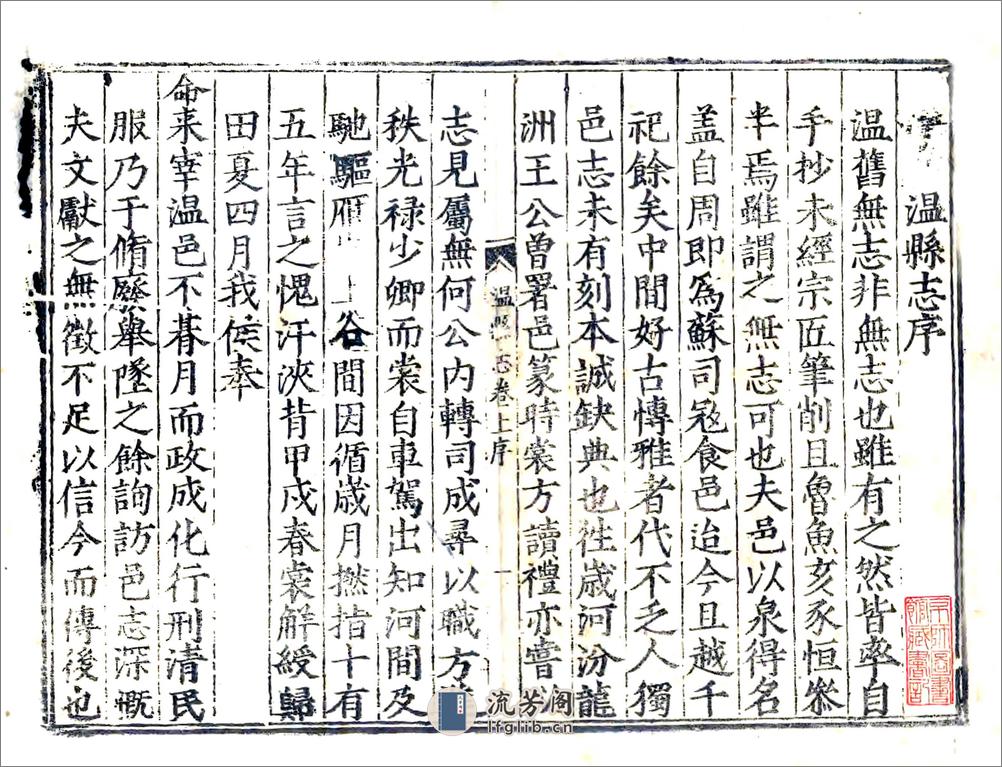 溫縣志序
溫舊無志非無志也雖有之然皆率自
手抄未經宗匠筆削且魯魚亥豕恒叅
半焉雖謂之無志可也夫邑以泉得名
盖自周即為蘇司寇食邑迨今且越千
祀餘矣中間好古愽雅者代不乏人獨
邑志未有刻本誠缺典也徃歲河汾龍
洲王公曾署邑篆時裳方讀禮亦嘗
溫縣志卷上序
一
志見屬無何公內轉司成尋以職方
秩光禄少卿而裳自車駕出知河間及
馳驅鴈 上谷間因循歲月撚指十有
五年言之愧汗浹背甲戌春裳解綬歸
田夏四月我侯奉
命来宰溫邑不朞月而政成化行刑清民
服乃于脩廢舉墜之餘詢訪邑志深慨
夫文獻之無徵不足以信今而傳後也
流芳阁
lfglib.cn